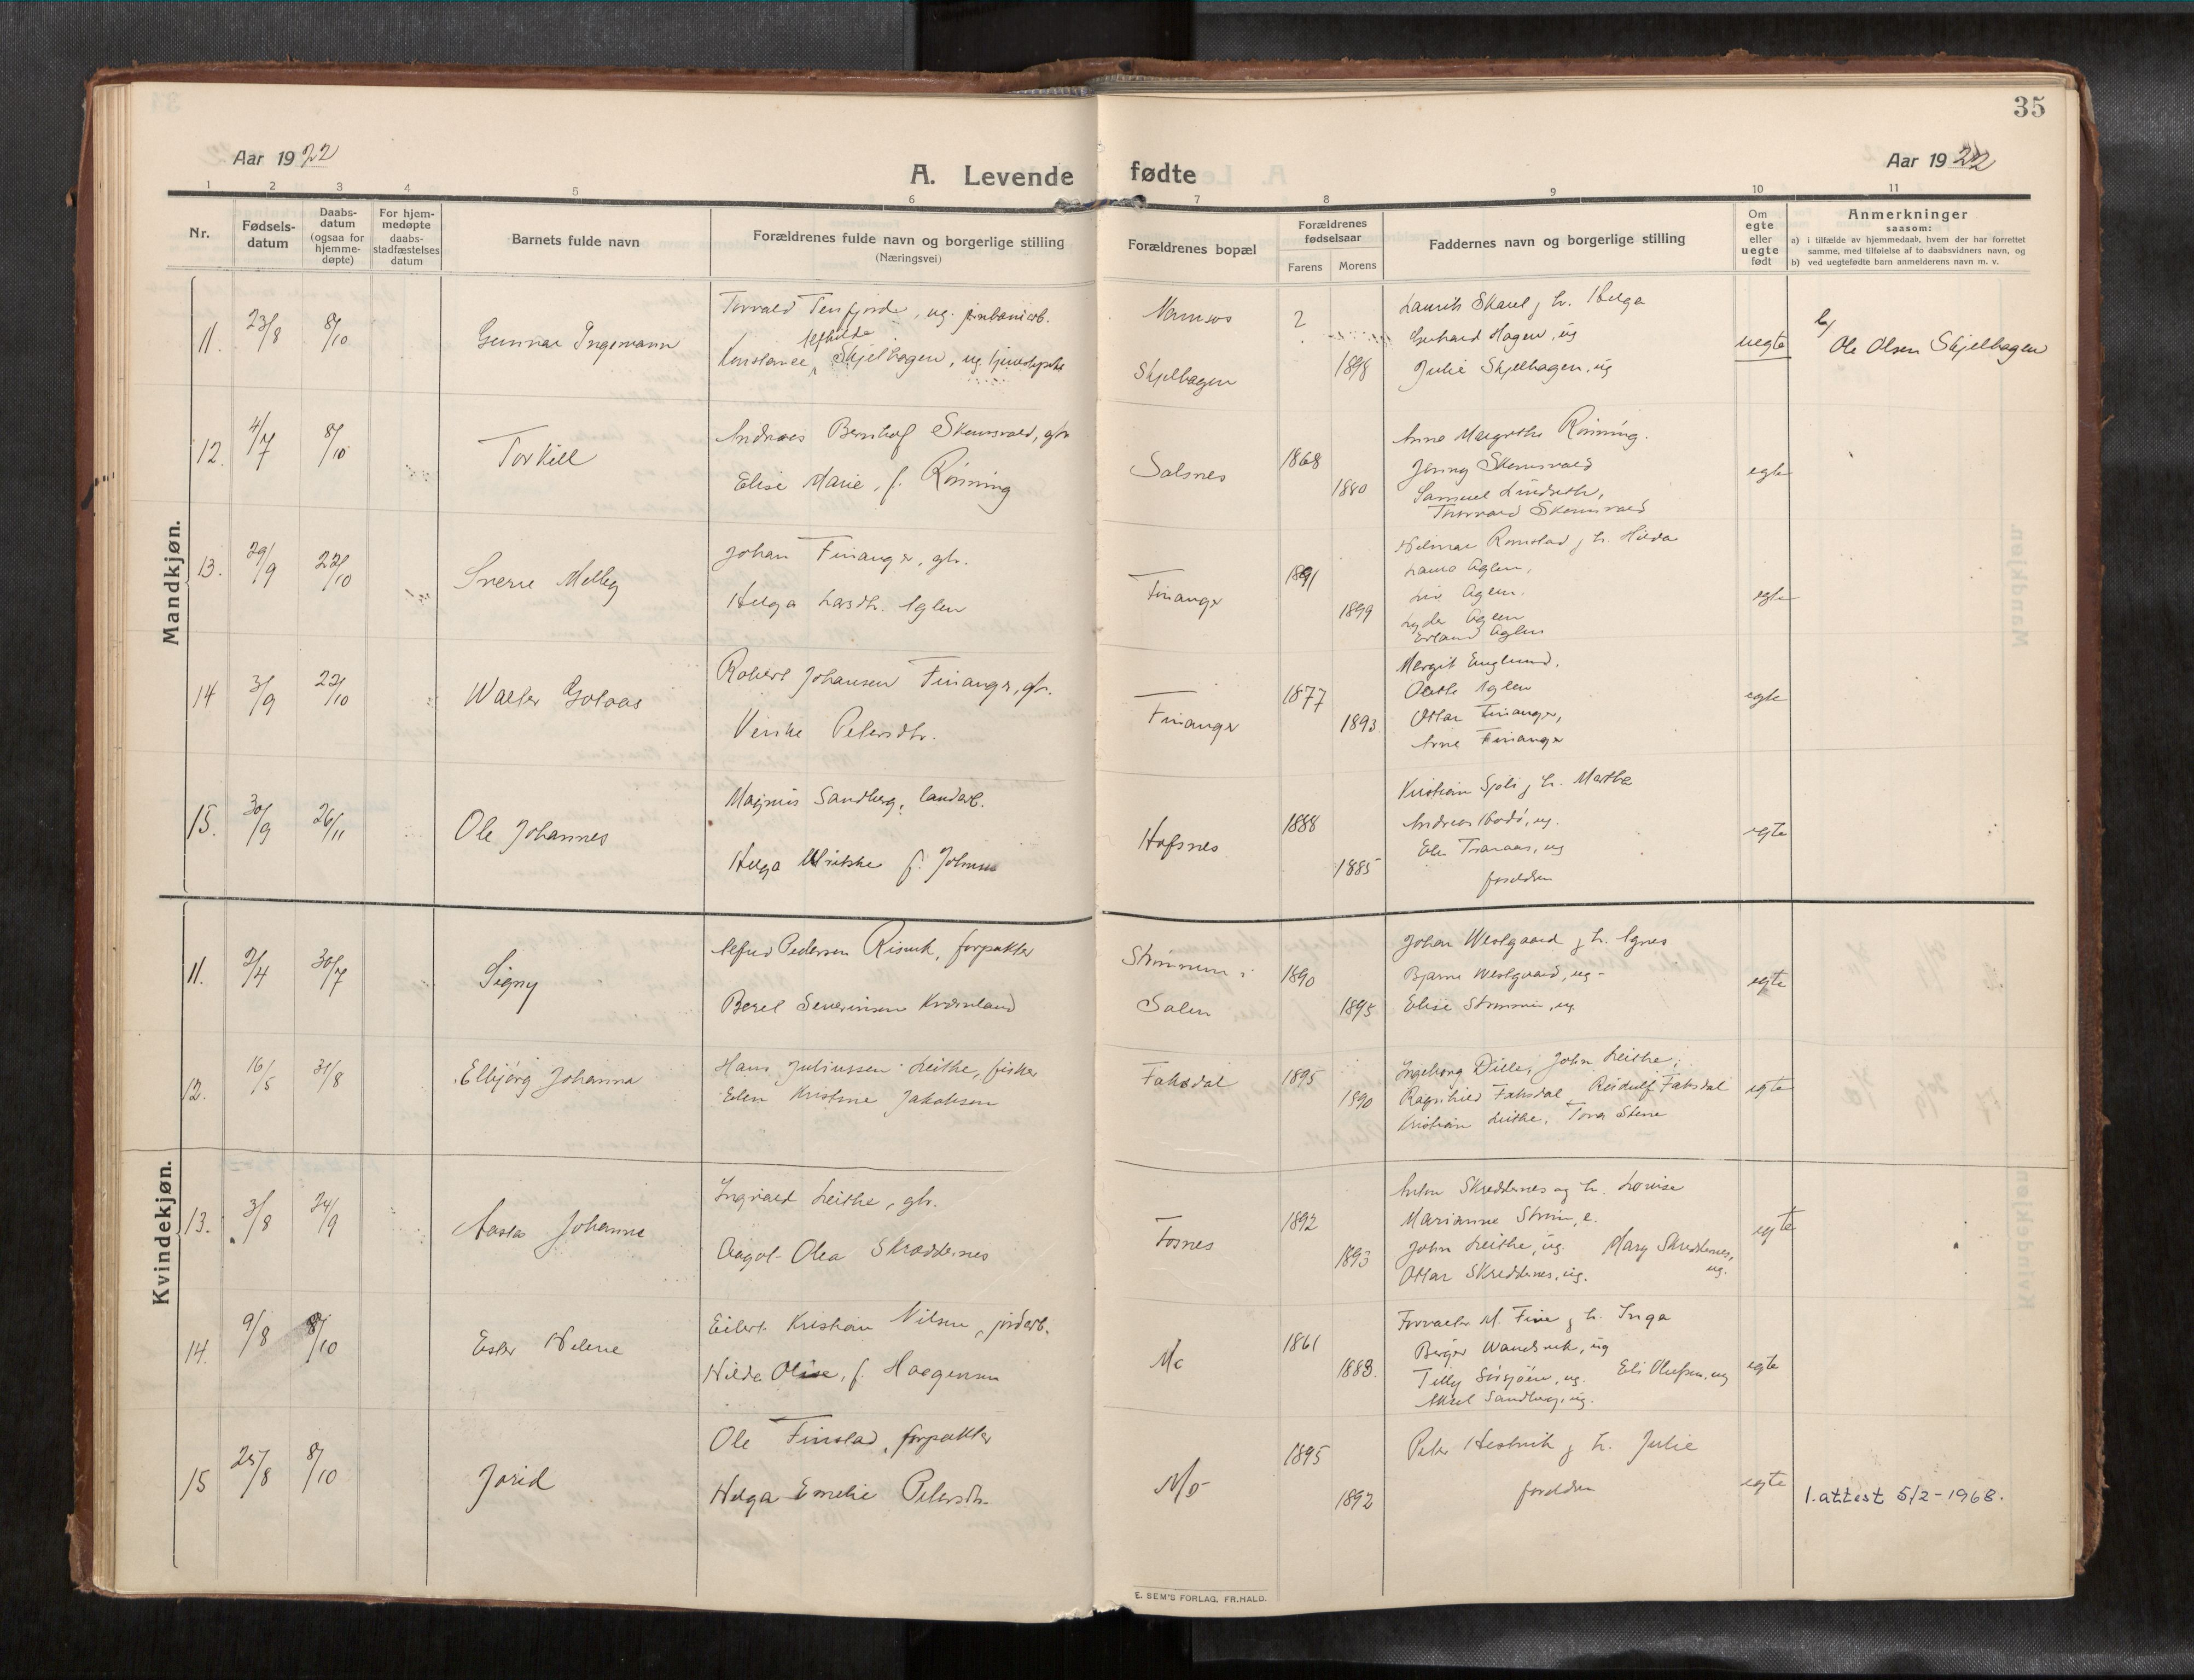 35
Aar 1922
Aar 1922
A. Levende fødte
1 2 3 4 5 6 7 8 9 10 11
Nr.
Fødsels-
datum
Daabs-
datum
(ogsaa for
hjemme-
døpte)
For hjem-
medøpte
daabs-
stadfæstelses
datum
Barnets fulde navn
Forældrenes fulde navn og borgerlige stilling
(Næringsvei)
Forældrenes bopæl
Forældrenes
fødselsaar
Farens
Morens
Faddernes navn og borgerlige stilling
Om
egte
eller
uegte
født
Anmerkninger
saasom:
a) i tilfælde av hjemmedaab, hvem der har forrettet
samme, med tilføielse af to daabsvidners navn, og
b) ved uegtefødte barn anmelderens navn m. v.
Mandkjøn.
11. 23/8 8/10 Gunnar Ingemann
Torvald Tenfjord, ug.
Skjelbagen, ug.
Namsos
Skjelbagen
?
1898
Skarel j h. Helga
Hagen, ug
Julie Skjelbagen, ug
uegte
b/
Ole Olsen Skjelbagen
12. 4/7 8/10 Torkill
Andreas Skomsvold, gbr
Elise Marie, f. Rönning
Salsnes
1868
1880
Anne Margrethe Rönning.
Jenny Skomsvold
Samuel Lindseth,
Thorvald Skomsvold
egte
13. 29/9 22/10 Sverre Melby
Johan Finanger, gbr.
Helga Larsdtr. Aglen
Finanger
1891
1899
Hilmar Romstad j h. Hilda
Laura Aglen,
Liv Aglen.
Lyder Aglen
Erland Aglen
egte
14 3/9 22/10 Walter Golaas
Robert Johansen Finanger, gbr.
Petersdtr.
Finanger
1877
1893
Margit Englund.
Aglen
Ottar Finanger,
Arne Finanger
egte
15. 30/9 26/11 Ole Johannes
Magnus Sandberg, landarb.
Helga Ulrikke f. Johnsen
Hofsnes
1888
1885
Kristian j h. Martha
Andreas, ug.
Tranaas, ug
foreldre
egte
Kvindekjøn.
11. 2/4 30/7 Signy
Alfred Pedersen Risvik, forpakter
Beret Severinsen Kvernland
Strömmen i
Salen
1890
1895
Johan Westgaard j h. Agnes
Bjarne Westgaard, ug-
Elise Strömmen, ug.
egte
12. 16/5 31/8 Elbjörg Johanna
Hans Juliussen Leithe, fisker
Elen Kristine Jakobsen
Faksdal
1895
1890
Ingeborg Dille, John Leithe,
Ragnhild Faksdal Reidulf Faksdal
Kristian Leithe, Tora Stene
egte
13. 3/8 24/9 Aasta Johanne
Ingvald Leithe, gbr.
Aagot Olea Skreddernes
Fosnes
1892
1893
Anton Skreddernes og h. Lovise
Marianne Ström, e.
John Leithe, ug. Mary Skreddernes,
Ottar Skreddernes, ug. ug.
egte
14. 9/8 8/10 Ester Helene
Eilert Kristian Nilsen, jordarb.
Hilda Olise, f. Haagensen
Mo
1861
1883.
M. Fine j h. Inga
Birger Wandsvik, ug
Tilly Sörsjöen, ug. Eli Olufsen, ug
Aksel Sandberg, ug.
egte
15 25/8 8/10 Jorid
Ole Finstad, forpakter
Helga Emelie Petersdtr.
Mo
1895
1892
Peter Hestvik j h. Julie
foreldre
egte
1. attest 5/2-1968.
E. SEM'S FORLAG, FR.HALD.